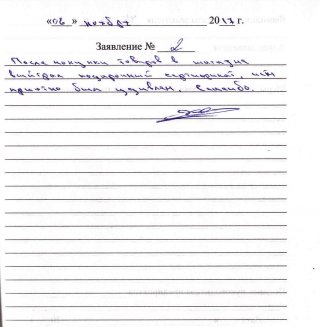 «08» ноября 2017 г.
Заявление № 2
После покупки товаров в магазине
выиграл подарочный сертификат, чем
приятно был удивлен. Спасибо.